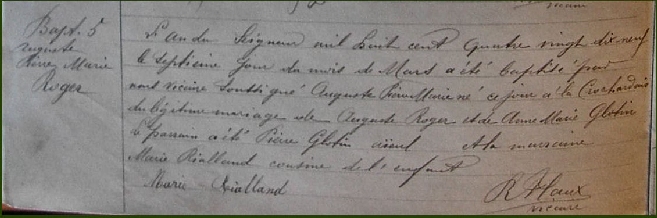 vicaire
Bapt. 5
Auguste
Pierre Marie
Roger
L'an du Seigneur mil huit cent quatre vingt dix neuf
le septième jour du mois de Mars a été baptisé par
nous vicaire soussigné Auguste Pierre Marie né ce jour à la
du légitime mariage de Auguste Roger et de Anne Marie Glotin
Le parrain a été Pierre Glotin aïeul et la marraine
Marie Rialland cousine de l'enfant
Marie Rialland
vicaire